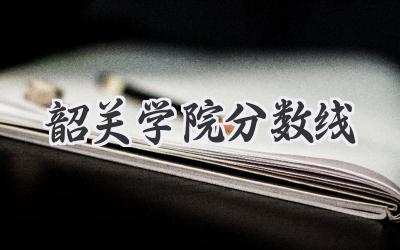 韶关学院分数线